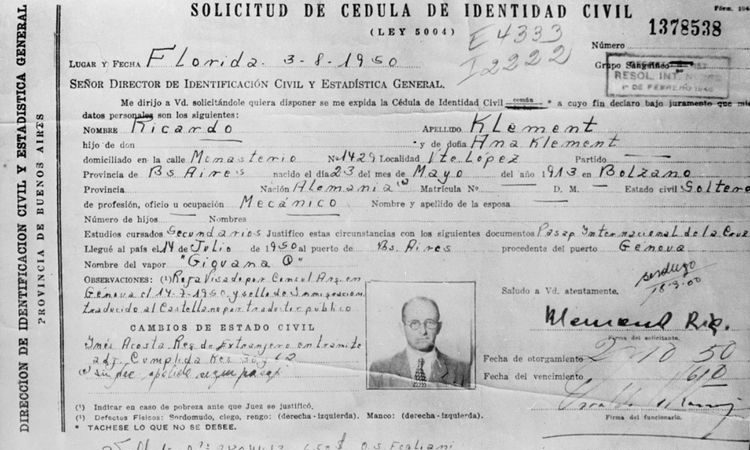 SOLICITUD DE CEDULA DE IDENTIDAD CIVIL
Fórm. 104
(LEY 5004)
E 4333
I 2222
1378538
Número
LUGAR Y FECHA Florida. 3-8-1950
Grupo Sanguíneo
SEÑOR DIRECTOR DE IDENTIFICACIÓN CIVIL Y ESTADÍSTICA GENERAL.
RESOL. INT.
1º DE FEBRERO 1946
Me dirijo a Vd. solicitándole quiera disponer se me expida la Cédula de Identidad Civil común * a cuyo fin declaro bajo juramento que mis
datos personales son los siguientes:
NOMBRE Ricardo APELLIDO Klement
hijo de don y de doña Ana Klement
domiciliado en la calle Monasterio Nº 1429 Localidad Vte. López Partido
Provincia de Bs. Aires nacido el día 23 del mes de Mayo del año 1913 en Bolzano
Provincia Nación Alemania Matrícula Nº D. M. Estado civil Soltero
de profesión, oficio u ocupación Mecánico Nombre y apellido de la esposa
Número de hijos Nombres
Estudios cursados Secundarios Justifico estas circunstancias con los siguientes documentos Pasap. Internacional de la Cruz
Llegué al país el 14 de Julio de 1950 al puerto de Bs. Aires procedente del puerto Genova
Nombre del vapor "Giovana C"
OBSERVACIONES: (1) Roja Visado por Consul Arg. en
Genova el 14-7-1950 y sello de Inmigracion
traducido al Castellano por traductor publico
Saludo a Vd. atentamente.
CAMBIOS DE ESTADO CIVIL
Firma del solicitante.
Inés Acosta Reg de Extranjero en tramite
Fecha de otorgamiento 2 10 50
Fecha de vencimiento
Firma del funcionario.
(¹) Indicar en caso de pobreza ante que Juez se justificó,
(²) Defectos Físicos: Sordomudo, ciego, rengo: (derecha-izquierda). Manco: (derecha-izquierda).
* TACHESE LO QUE NO SE DESEE.
DIRECCION DE IDENTIFICACION CIVIL Y ESTADISTICA GENERAL
PROVINCIA DE BUENOS AIRES